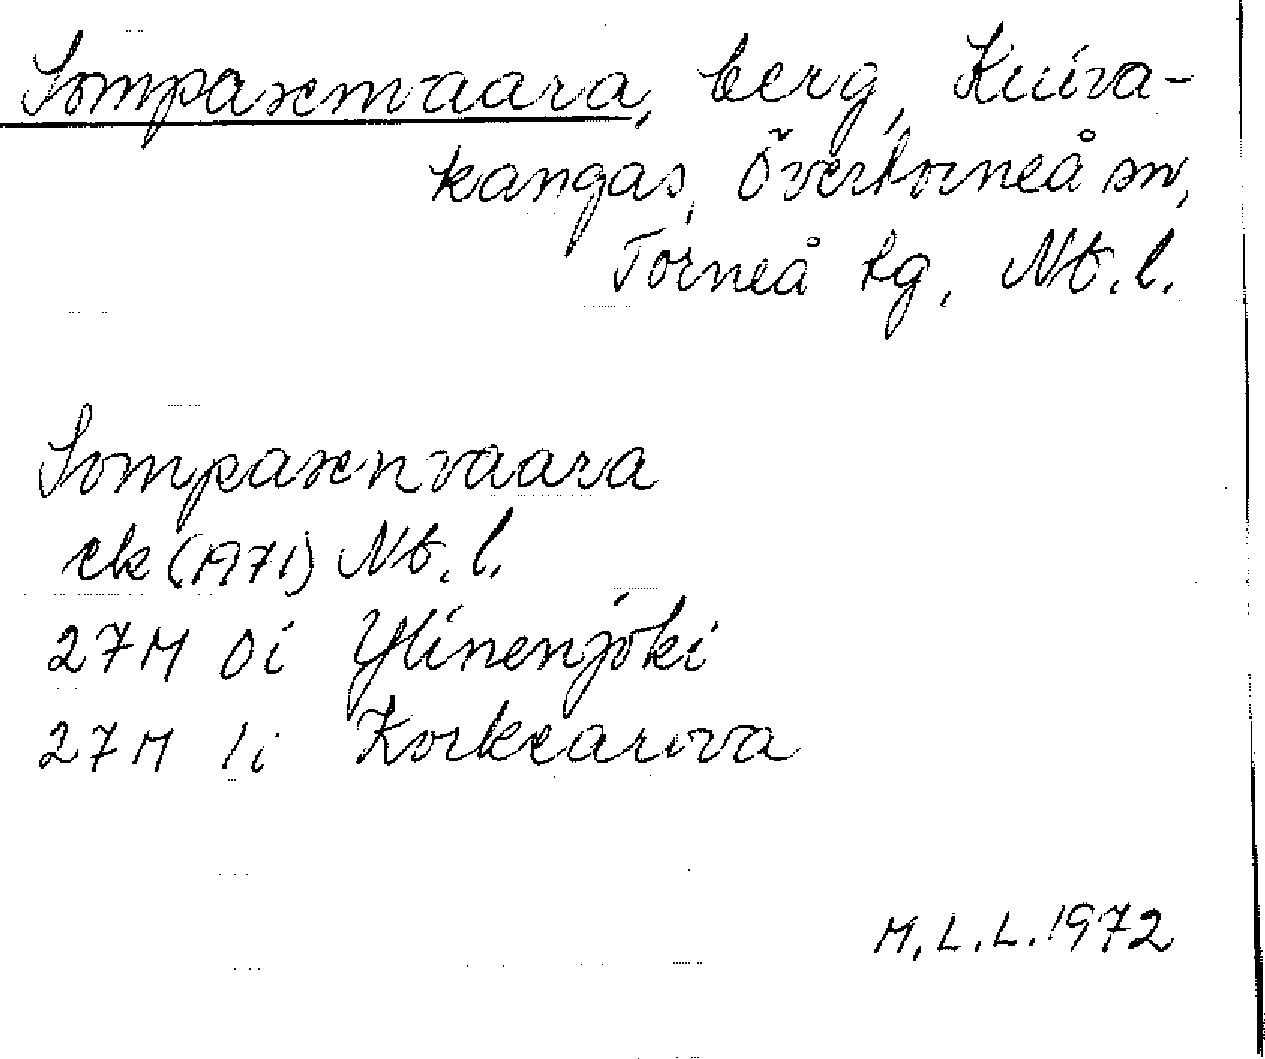 Sompasenvaara, berg, Kuiva-
kangas, Övertorneå sn,
Torneå tg, Nb. l.
Sompasenvaara
ek (1971) Nb. l.
27M 0i Ylinenjoki
27M 1i Korkearova
M. L. L. 1972